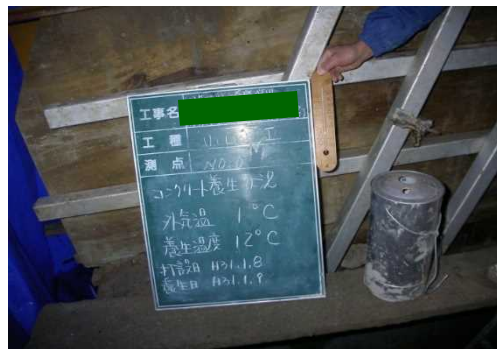 工事名
工種 工
測点 NO.0
コンクリート養生状況
外気温 1°C
養生温度 12°C
打設日 H31.1.8
養生日 H31.1.9